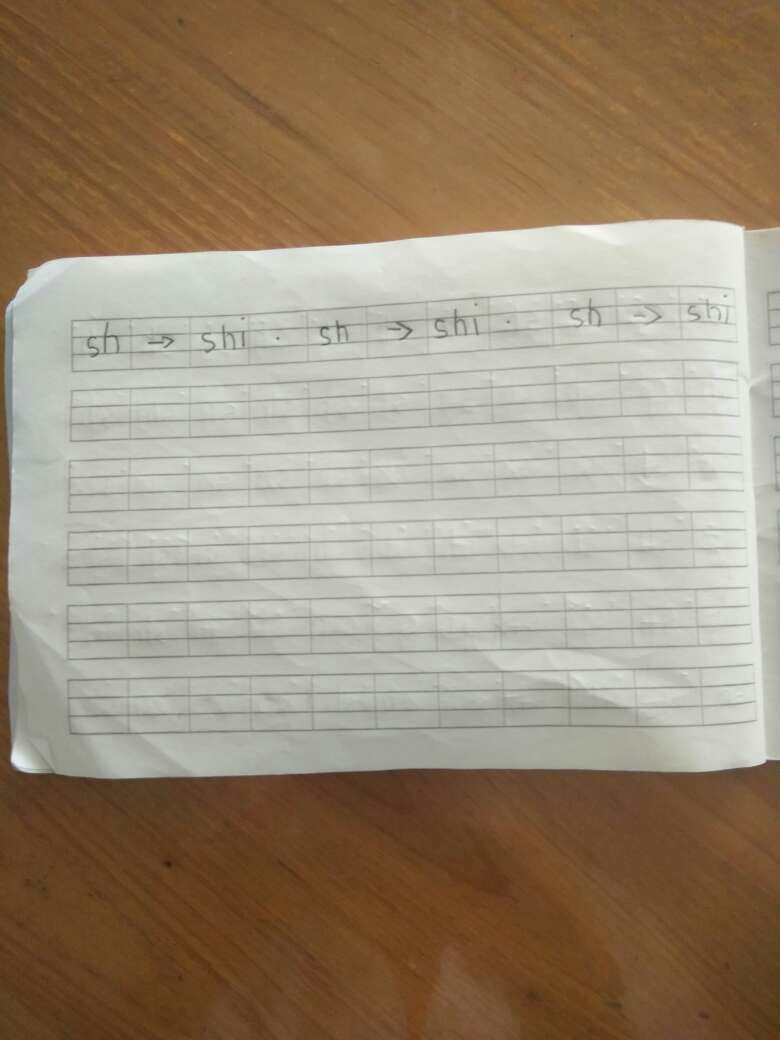 sh → shi · sh → shi · sh → shi